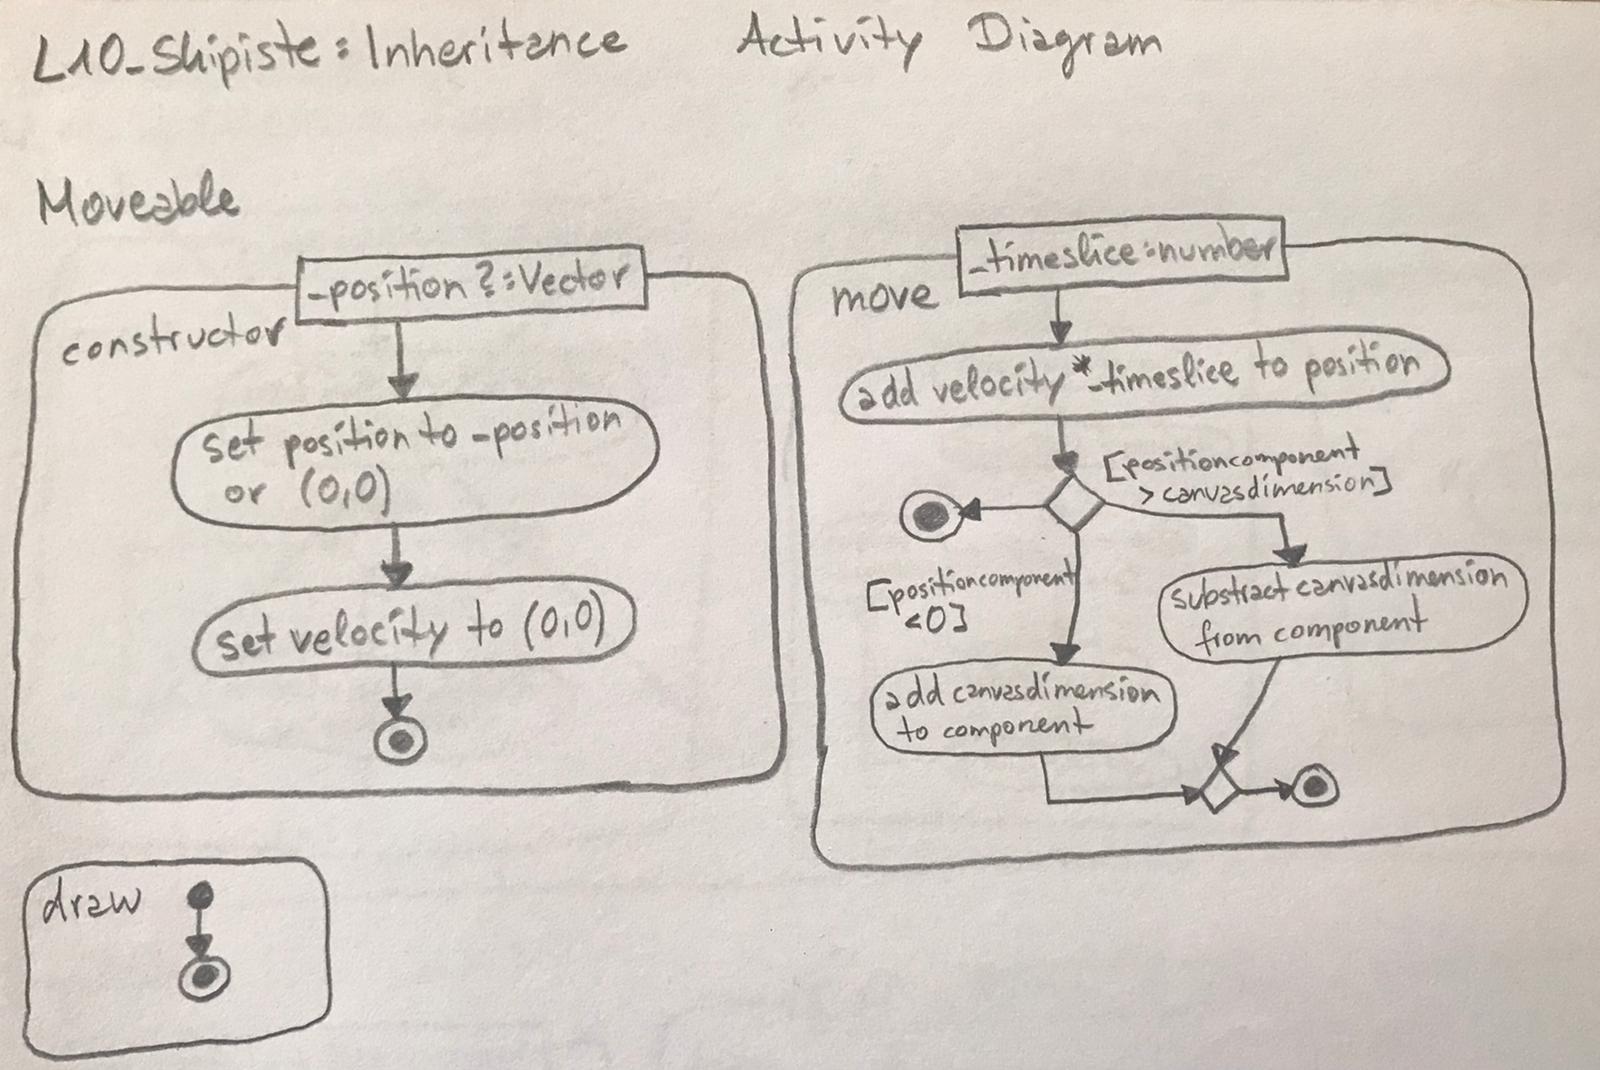 L10_Skipiste: Inheritance Activity Diagram
Moveable
_position?: Vector
constructor
set position to _position
or (0,0)
set velocity to (0,0)
_timeslice: number
move
add velocity * _timeslice to position
[positioncomponent
> canvasdimension]
[positioncomponent
<0]
substract canvasdimension
from component
add canvasdimension
to component
draw